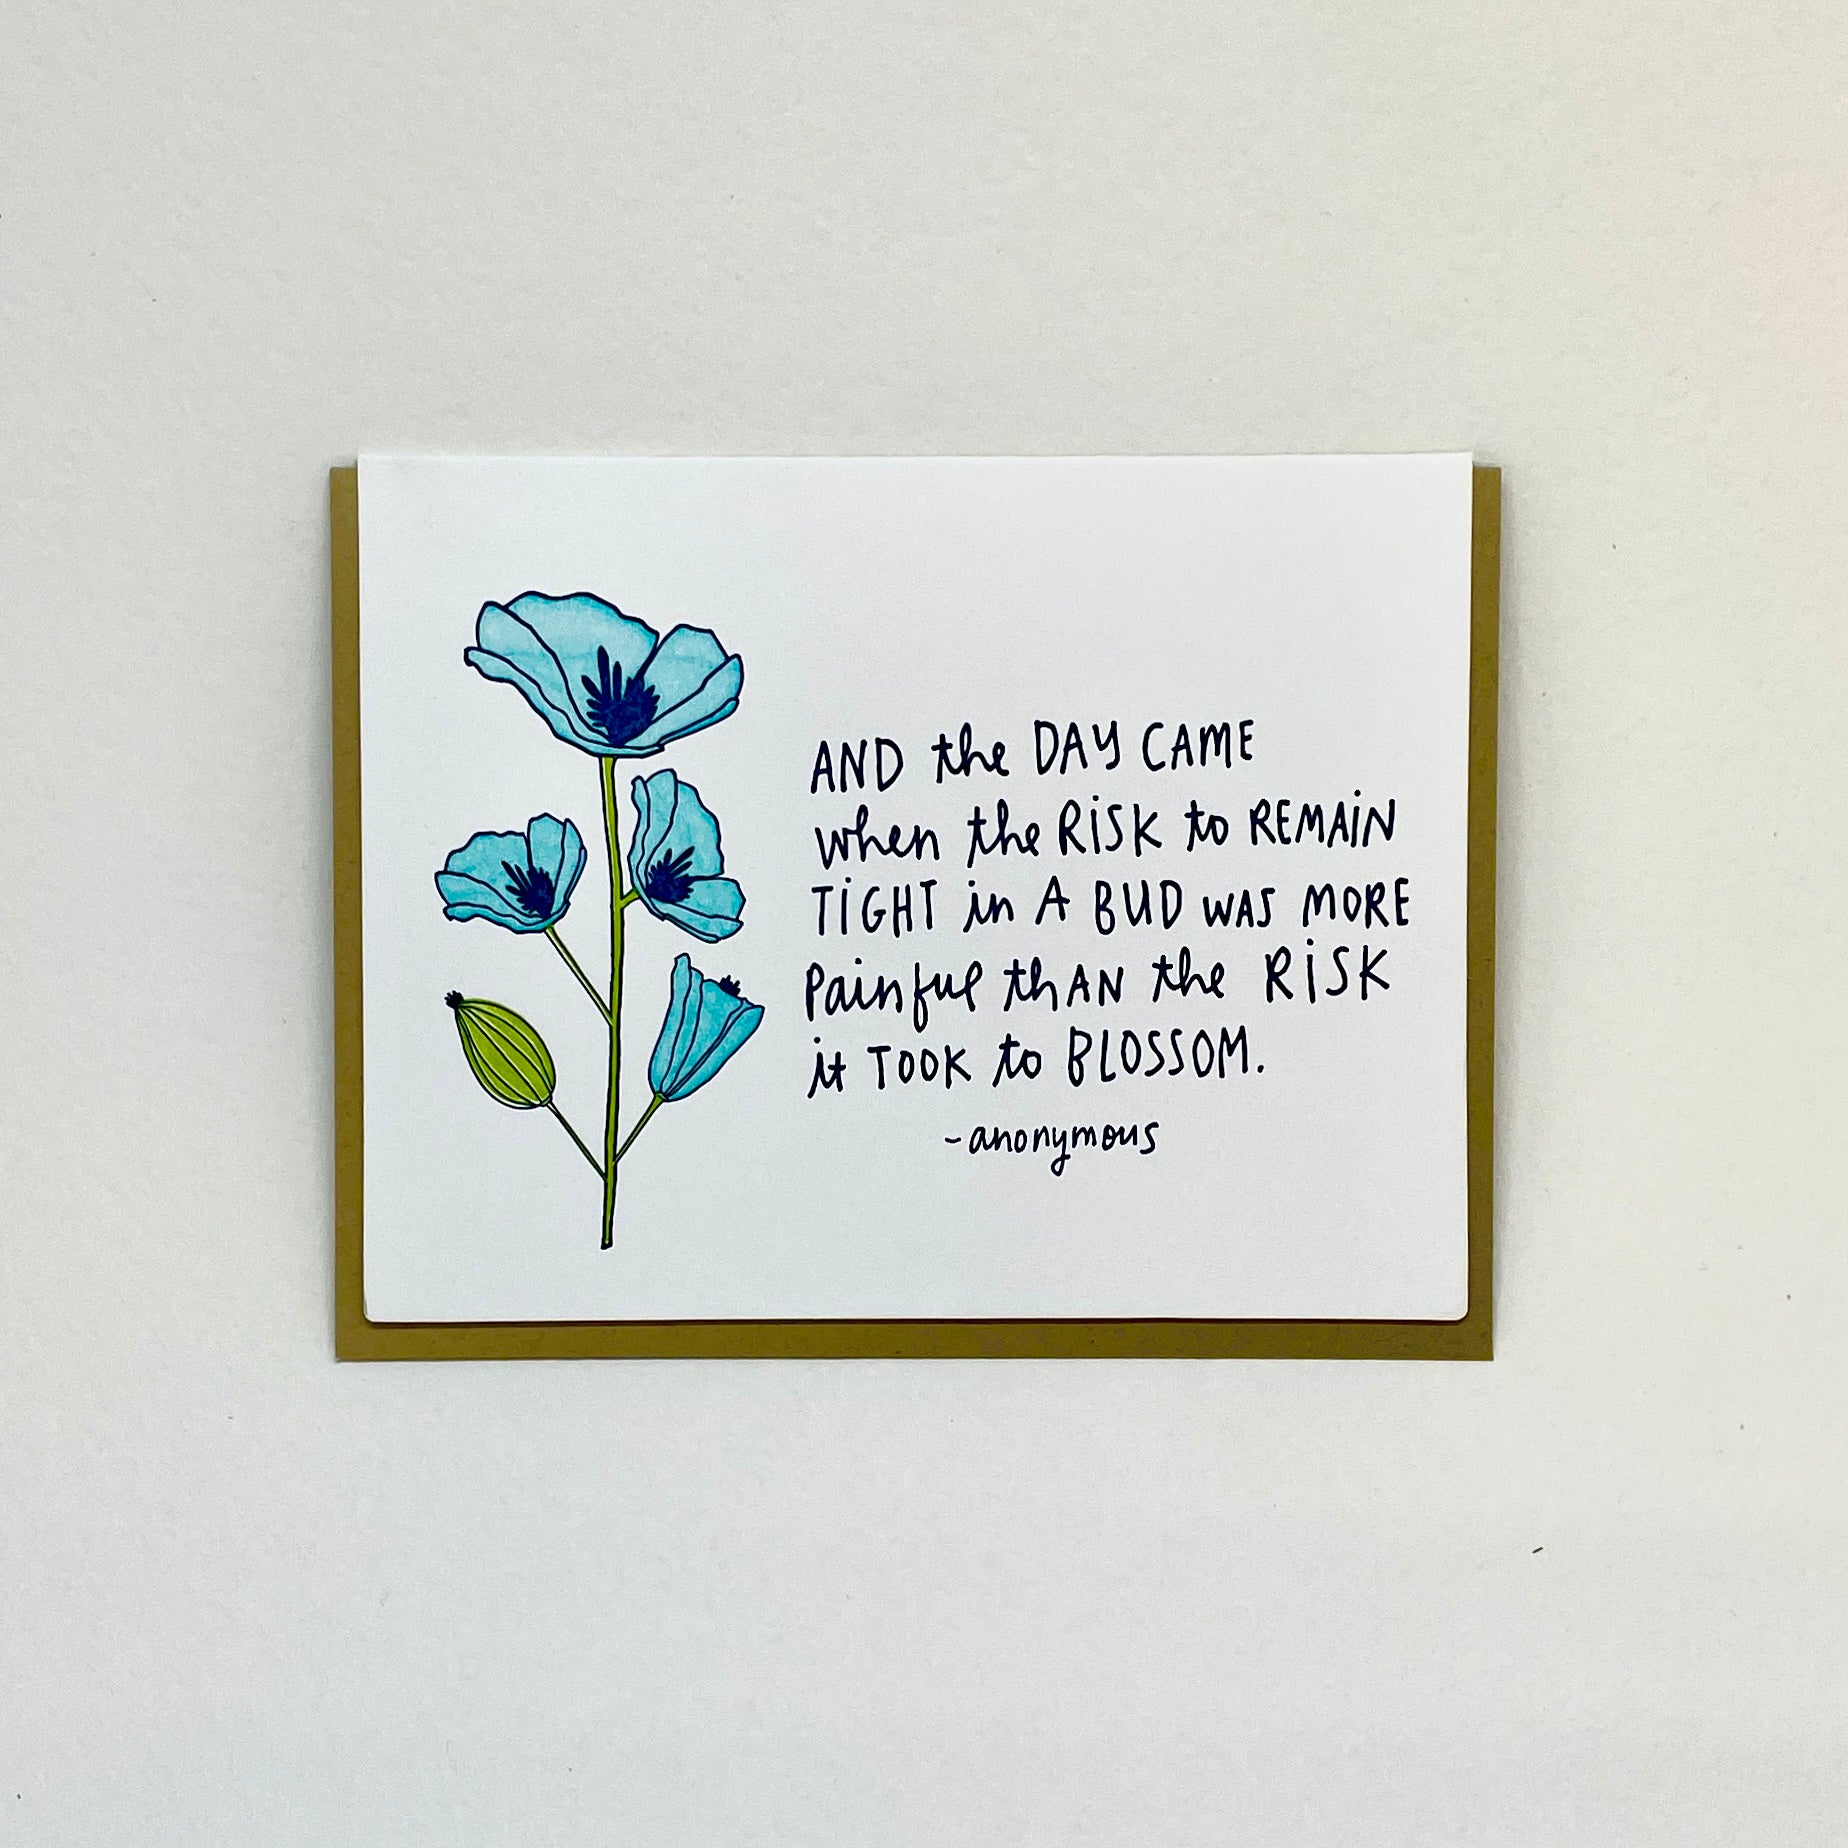 AND the DAY CAME
when the RiSK to REMAiN
TiGHT in A BUD WAS MORE
Painful thAN the RiSK
it TOOK to BLOSSOM.
-anonymous